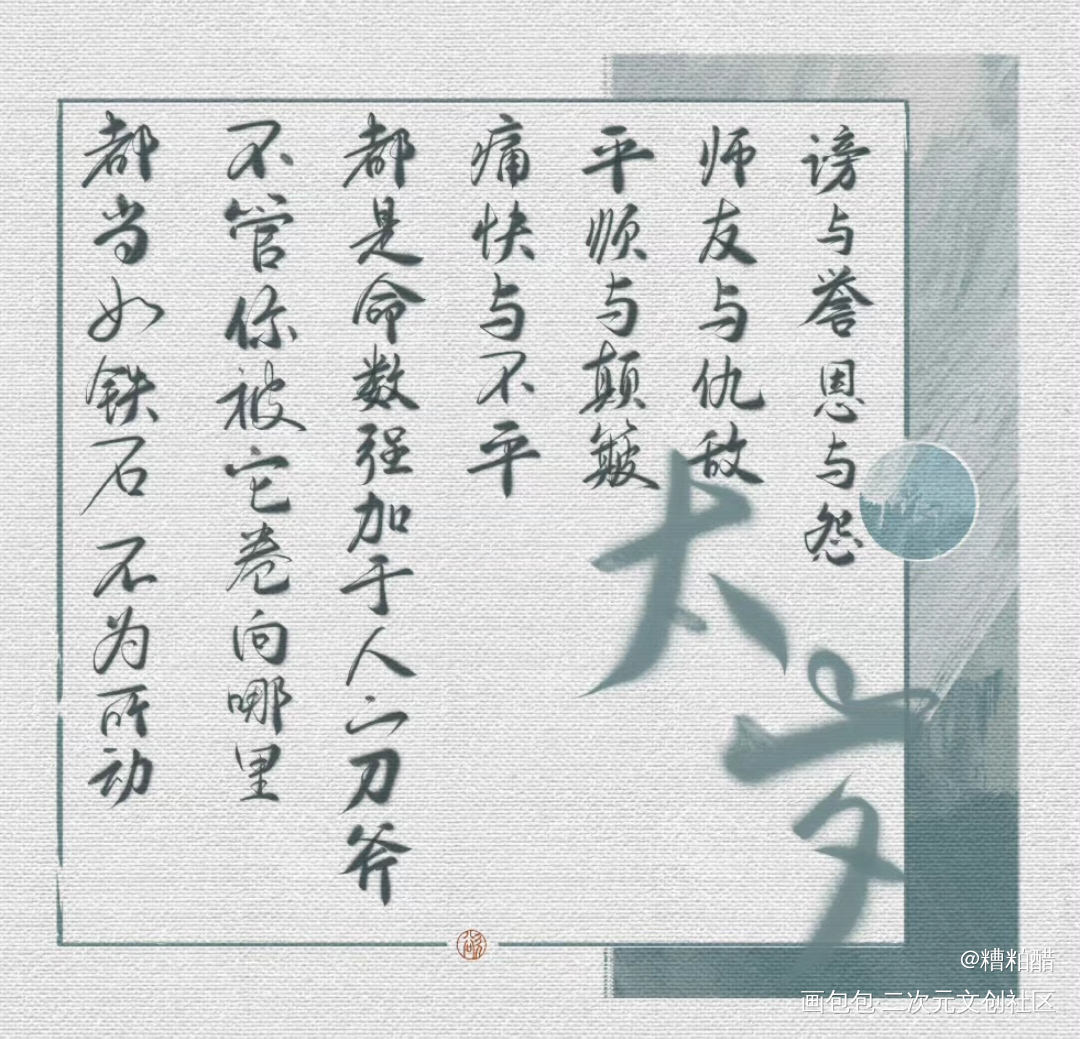 谤与誉恩与怨
师友与仇敌
平顺与颠簸
痛快与不平
都是命数强加于人一刀斧
不管你被它卷向哪里
都当如铁石不为所动
@糟粕醋
画包包·二次元文创社区